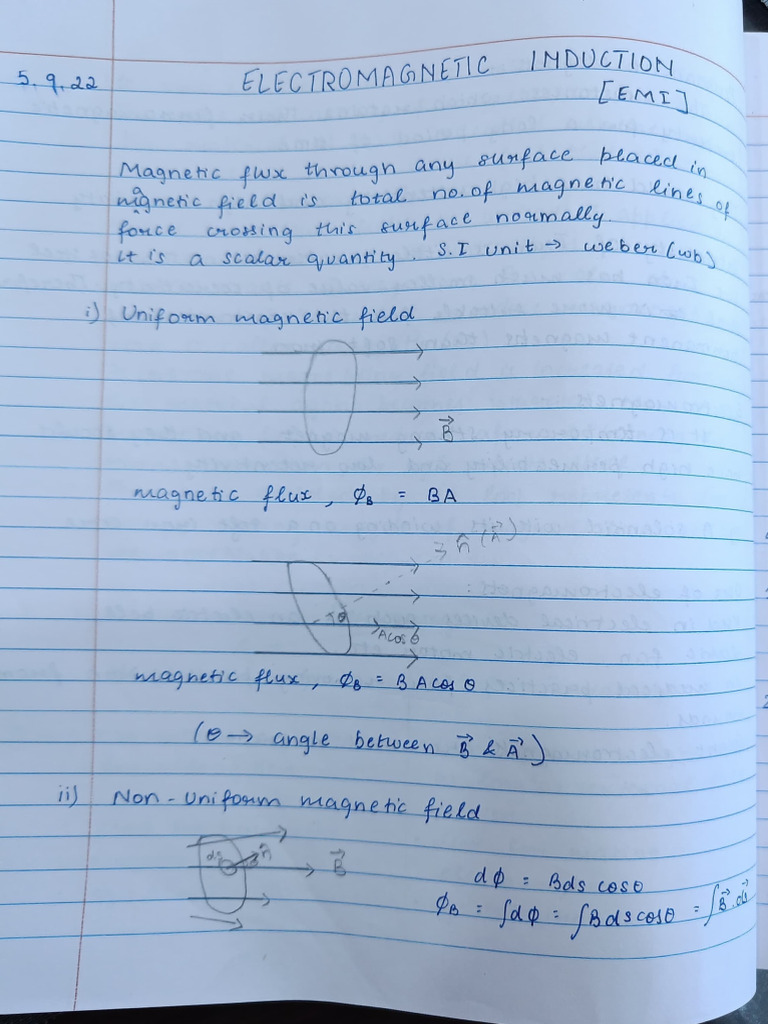 5.9.22
ELECTROMAGNETIC INDUCTION
[EMI]
Magnetic flux through any surface placed in
magnetic field is total no. of magnetic lines of
force crossing this surface normally.
it is a scalar quantity. S.I unit → weber (wb)
i) Uniform magnetic field
B⃗
magnetic flux, ϕB = BA
n̂ (A⃗)
θ
A cos θ
magnetic flux, ϕB = BA cos θ
(θ → angle between B⃗ & A⃗)
ii) Non-Uniform magnetic field
ds
n̂
B⃗
dϕ = Bds cosθ
ϕB = ∫dϕ = ∫Bds cosθ = ∫B⃗.ds⃗